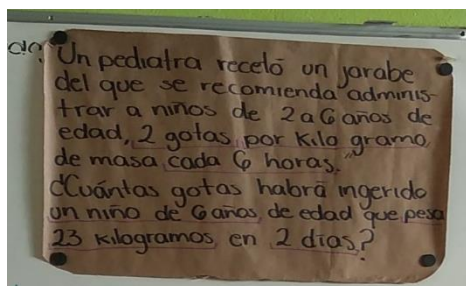 Un pediatra recetó un jarabe
del que se recomienda adminis-
trar a niños de 2 a 6 años de
edad, 2 gotas por kilo gramo
de masa cada 6 horas.
¿Cuántas gotas habrá ingerido
un niño de 6 años de edad que pesa
23 kilogramos en 2 días?